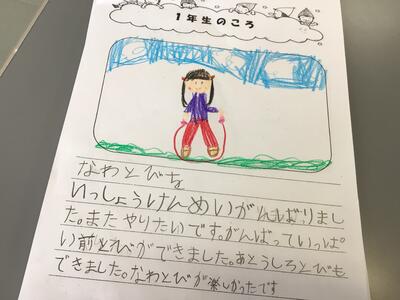 1年生のころ
なわとびを
いっしょうけんめいがんばりまし
た。またやりたいです。がんばっていっぱ
い前とびができました。あとうしろとびも
できました。なわとびが楽しかったです